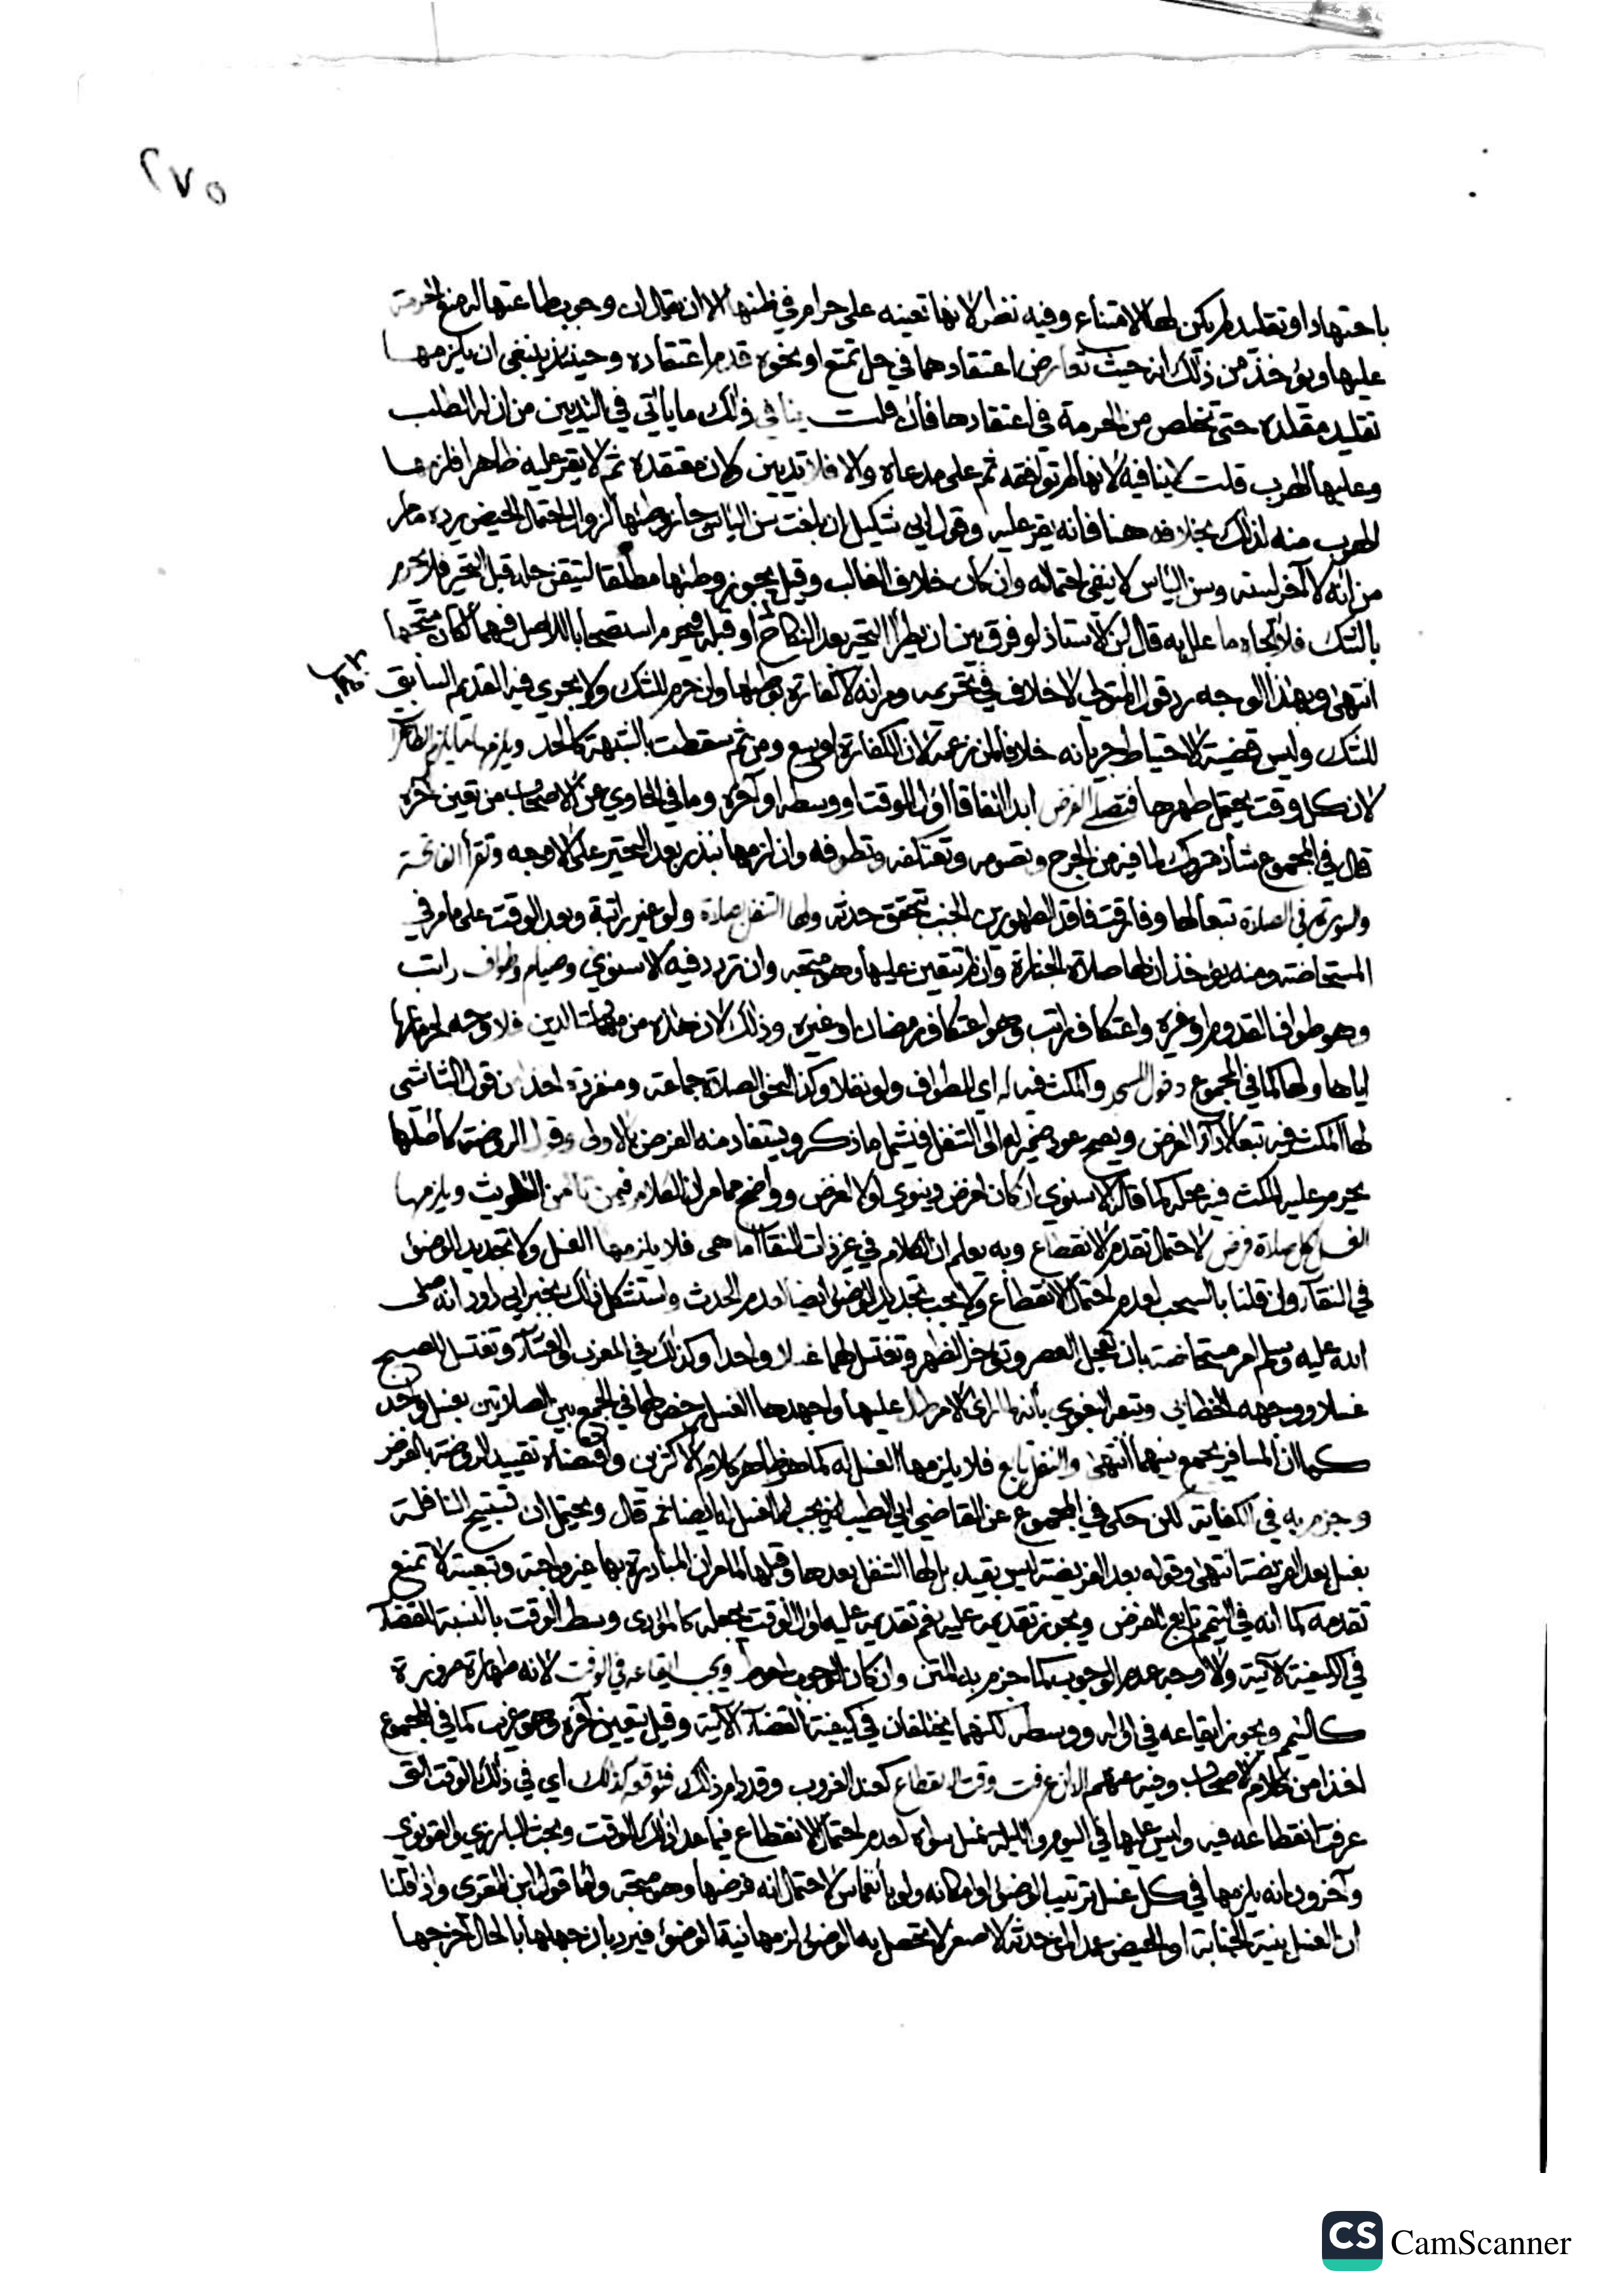 ٢٧٥
باجتهاد او تقليد لم يكن لها الامتناع وفيه نظر لانها تعينه على حرام في ظنها الا ان يقال ان وجوب طاعتها له منع الحرمة
عليها ويؤخذ من ذلك انه حيث تعارض اعتقادهما في حل تمتع او نحوه قدم اعتقاده وحينئذ ينبغي ان يلزمها
تقليد مقلده حتى تخلص من الحرمة في اعتقادها فان قلت ينافي ذلك ما ياتي في التديين من ان له الطلب
وعليها الهرب قلت لا ينافيه لانها لم توافقه ثم على مدعاه والا فلا تديين ولان معتقده ثم لا يقر عليه ظاهرا فلزمها
الهرب منه لذلك بخلافه هنا فانه يقر عليه وقول ابي شكيل ان بلغت سن الياس جاز وطئها لزوال احتمال الحيض يرده ما مر
من انه لا آخر لسنه وسن الياس لا ينفي احتماله وان كان خلاف الغالب وقيل يجوز وطئها مطلقا لتيقن حله قبل التحير فلا يحرم
بالشك فلا اتجاه ما علل به قال ابن الاستاذ لو فرق بين ان يطرأ التحير بعد النكاح او قبله فيحرم استصحابا للاصل فيهما لكان متجها
انتهى وبهذا الوجه رد قول المتولي لا خلاف في تحريمه ومر انه لا كفارة بوطئها وان حرم للشك ولا يجري فيه القديم السابق
للشك وليس قضية الاحتياط جريانه خلافا لمن زعمه لان الكفارة اوسع ومن ثم سقطت بالشبهة كالحد ويلزمها ما يلزم الطاهر
لان كل وقت يحتمل طهرها فتصلي الفرض ابدا اتفاقا اول الوقت او وسطه او آخره وما في الحاوي عن الاصحاب من تعين آخره
قال في المجموع شاذ متروك لما فيه من الحرج وتصومه وتعتكفه وتطوفه وان لزمها بنذر بعد التحير على الاوجه وتقرأ الفاتحة
والسورة في الصلاة تبعا لها وفارقت فاقد الطهورين الجنب بتحقق حدثه ولها التنفل بصلاة ولو غير راتبة وبعد الوقت على ما مر في
المستحاضة ومنه يؤخذ ان لها صلاة الجنازة وان لم تتعين عليها وهو متجه وان تردد فيه الاسنوي وصيام وطواف راتب
وهو طواف القدوم او غيره واعتكاف راتب وهو اعتكاف رمضان او غيره وذلك لان هذه من مهمات الدين فلا وجه لحرمانها
اياها ولها كما في المجموع دخول المسجد والمكث فيه له اي للطواف ولو نفلا وكذا لنحو الصلاة جماعة ومنفردة اخذا من قول الشاشي
لها المكث فيه تبعا لاداء الفرض ويصح عود ضمير له الى التنفل فيشمل ما ذكر ويستفاد منه الفرض بالاولى وقول الروضة كاصلها
يحرم عليه المكث فيه محله كما قاله الاسنوي ان كان لغرض دنيوي او لا لغرض وواضح مما مر ان الكلام فيمن تامن التلويث ويلزمها
الغسل لكل صلاة فرض لاحتمال تقدم الانقطاع وبه يعلم ان الكلام في غير ذات النقا اما هي فلا يلزمها الغسل ولا تجديد الوضوء
في النقاء وان قلنا بالسحب لعدم احتمال الانقطاع ولا يجب تجديد الوضوء ايضا لعدم الحدث واستشكل ذلك بخبر ابي داود انه صلى
الله عليه وسلم امر مستحاضة بان تعجل العصر وتؤخر الظهر وتغتسل لهما غسلا واحدا وكذلك في المغرب والعشاء وتغتسل للصبح
غسلا ووجهه الخطابي وتبعه البغوي بأنه لما رأى الامر طال عليها واجهدها الغسل رخص لها في الجمع بين الصلاتين بغسل واحد
كما ان المسافر يجمع بينهما انتهى والنفل تابع فلا يلزمها الغسل له كما هو ظاهر كلام الاكثرين واقتضاه تقييد الروضة بالفرض
وجزم به في الكفاية لكن حكى في المجموع عن القاضي ابي الطيب انه يجب لها الغسل له ايضا ثم قال ويحتمل ان تستبيح النافلة
بغسل بعد الفريضة انتهى وقوله بعد الفريضة ليس بقيد بل لها التنفل بعدها وقبلها لما مر ان المبادرة بها غير واجبة وتبعيته لا تمنع
تقدمه كما انه في التيمم تابع للفرض ويجوز تقديمه عليه نعم تقديمه عليه اول الوقت يجعله كالمؤدى وسط الوقت بالنسبة للقضاء
في الكيفية الآتية والاوجه عدم الوجوب كما جزم به المتن وان كان الوجوب احوط ويجب ايقاعه في الوقت لانه طهارة ضرورة
كالتيمم ويجوز ايقاعه في اوله ووسطه لكنهما يختلفان في كيفية القضاء الآتية وقيل يتعين آخره وهو غريب كما في المجموع
اخذا من كلام الاصحاب وغيرهم الا ان عرفت وقت الانقطاع كعند الغروب وقد دام ذلك فتوقعه كذلك اي في ذلك الوقت الذي
عرفت انقطاعه فيه وليس عليها في اليوم والليلة غسل سواه لعدم احتمال الانقطاع فيما عدا ذلك الوقت وبحث البارزي والقونوي
وآخرون انه يلزمها في كل غسل ترتيب الوضوء او امكانه ولو بانغماس لاحتمال انه فرضها وهو متجه واما قول ابن المقري واذا قلنا
ان الغسل بنية الجنابة او الحيض عمدا لمن حدثه الاصغر لا يحصل به الوضوء لزمها نية الوضوء فيرد بان جهلها بالحال اخرجها
CS CamScanner